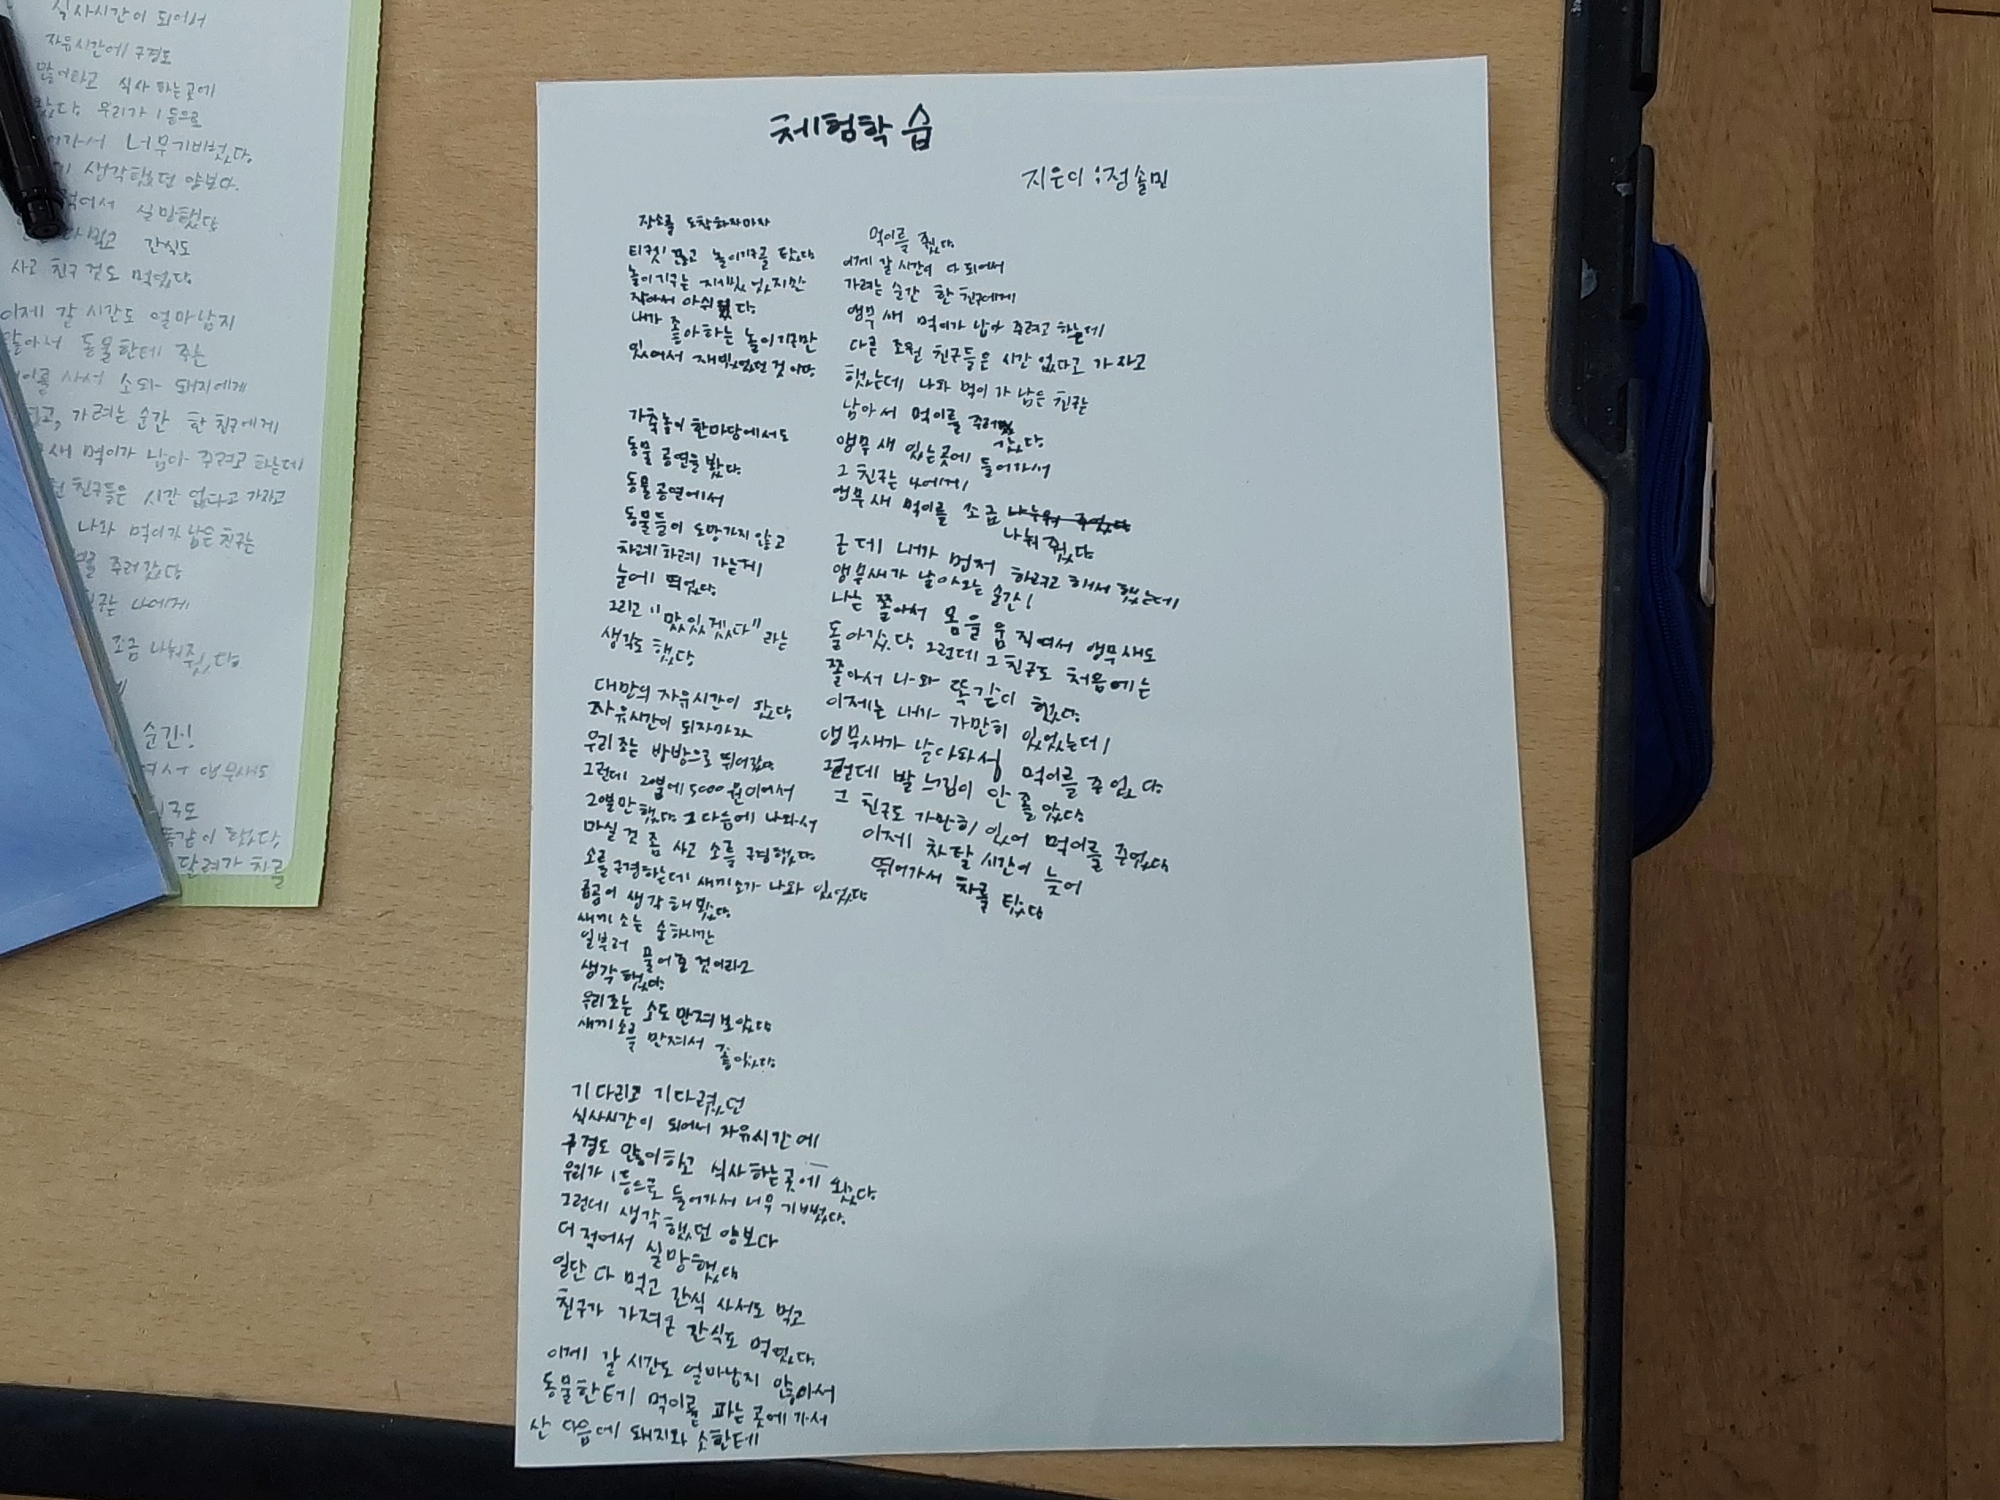 식사시간이 되어서
자유시간에 구경도
많이하고 식사 하는곳에
왔다. 우리가 1등으로
어가서 너무기뻐했다.
생각했던 양보다.
적어서 실망했다
먹고 간식도
사고 친구것도 먹었다
이제 갈 시간도 얼마남지
않아서 동물한테 주는
먹이를 사서 소와 돼지에게
주고, 가려는 순간 한 친구에게
새 먹이가 남아 주려고 하는데
친구들은 시간 없다고 가자고
나와 먹이가 남은 친구는
주러갔다
친구는 나에게
조금 나눠줬다
순간!
여서 앵무새도
친구도
똑같이 했다
달려가 차를
체험학습
지은이 : 정솔민
장소를 도착하자마자
티켓 끊고 놀이기구를 탔다
놀이기구는 재미있었지만
작아서 아쉬웠다.
내가 좋아하는 놀이기구만
있어서 재밌었던 것이다
가축놀이 한마당에서도
동물 공연을 봤다.
동물공연에서
동물들이 도망가지 않고
차례차례 가는게
눈에 띄었다.
그리고 "맛있겠다" 라는
생각도 했다
대만의 자유시간이 왔다.
자유시간이 되자마자
우리조는 방방으로 뛰어갔다.
그런데 2명에 5000원이어서
2명만했다. 그다음에 나와서
마실 것 좀 사고 소를 구경했다.
소를 구경하는데 새끼소가 나와 있었다.
곰곰이 생각해봤다.
새끼 소는 순하니깐
일부러 풀어놓 것이라고
생각했다.
우리조는 소도 만져보았다
새끼소를 만져서 좋았다.
기다리고 기다렸던
식사시간이 되어서 자유시간에
구경도 많이하고 식사 하는곳에 왔다.
우리가 1등으로 들어가서 너무 기뻤다.
그런데 생각했던 양보다
더 적어서 실망했다
일단 다 먹고 간식 사서도 먹고
친구가 가져온 간식도 먹었다.
이제 갈 시간도 얼마남지 않아서
동물한테 먹이를 파는 곳에가서
산 다음에 돼지와 소한테
먹이를 줬다.
이제 갈 시간이 다 되어서
가려는 순간 한 친구에게
앵무새 먹이가 남아 주려고 하는데
다른 조원 친구들은 시간 없다고 가자고
했는데 나와 먹이가 남은 친구는
남아서 먹이를 주러
갔다.
앵무새 있는곳에 들어가서
그 친구는 나에게
앵무새 먹이를 조금 나누워 주었다
나눠 줬다
근데 내가 먼저 하려고 해서 했는데
앵무새가 날아오는 순간!
나는 쫄아서 몸을 움직여서 앵무새도
돌아갔다. 그런데 그 친구도 처음에는
쫄아서 나와 똑같이 했다.
이제는 내가 가만히 있었는데
앵무새가 날아와서 먹이를 주었다.
그런데 발 느낌이 안 좋았다
그 친구도 가만히 있어 먹이를 주었다
이제 차탈 시간이 늦어
뛰어가서 차를 탔다